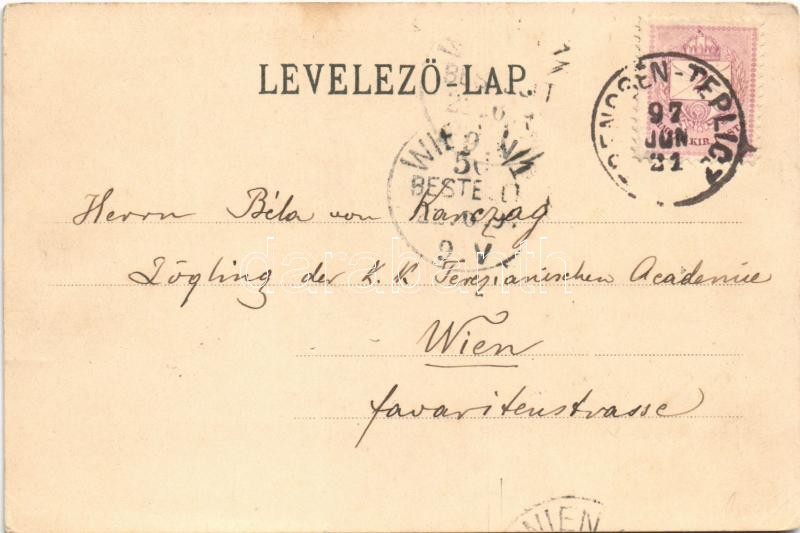 LEVELEZŐ-LAP.
TRENCSEN-TEPLICZ
97
JUN
21
KIR
WIEN
BESTELLT
9. V
Herrn Béla von Karczag
Zögling der K. K Terezianischen Academie
Wien
favaritenstrasse
WIEN
darabanth